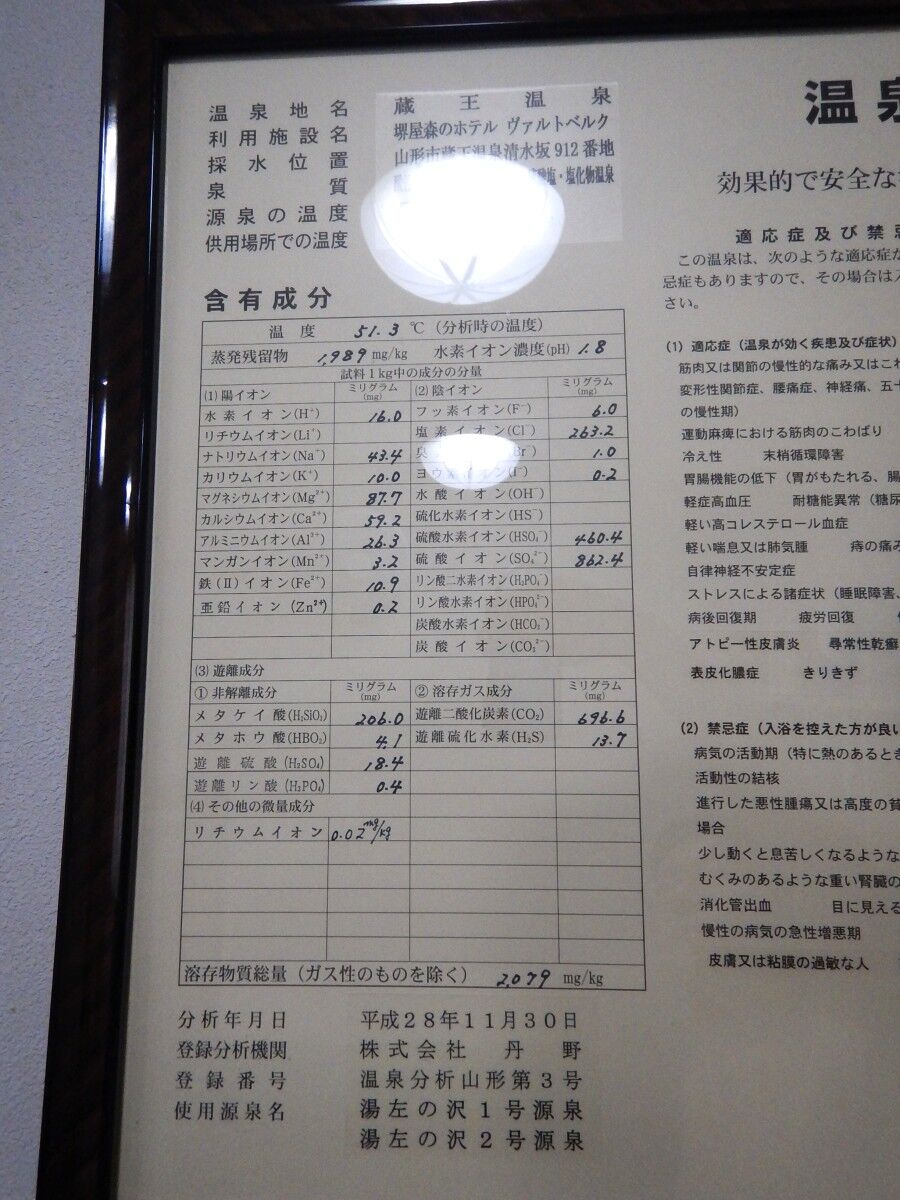 温泉地名 蔵王温泉
利用施設名 堺屋森のホテル ヴァルトベルク
採水位置 山形市蔵王温泉清水坂912番地
泉質 酸塩・塩化物温泉
源泉の温度
供用場所での温度
含有成分
温度 51.3 ℃(分析時の温度)
蒸発残留物 1,989 mg/kg 水素イオン濃度(pH) 1.8
試料1kg中の成分の分量
(1)陽イオン ミリグラム(mg) (2)陰イオン ミリグラム(mg)
水素イオン(H⁺) 16.0 フッ素イオン(F⁻) 6.0
リチウムイオン(Li⁺) 塩素イオン(Cl⁻) 263.2
ナトリウムイオン(Na⁺) 43.4 イオン(Br⁻) 1.0
カリウムイオン(K⁺) 10.0 ヨウ素イオン(I⁻) 0.2
マグネシウムイオン(Mg²⁺) 87.7 水酸イオン(OH⁻)
カルシウムイオン(Ca²⁺) 59.2 硫化水素イオン(HS⁻)
アルミニウムイオン(Al³⁺) 26.3 硫酸水素イオン(HSO₄⁻) 460.4
マンガンイオン(Mn²⁺) 3.2 硫酸イオン(SO₄²⁻) 862.4
鉄(Ⅱ)イオン(Fe²⁺) 10.9 リン酸二水素イオン(H₂PO₄⁻)
亜鉛イオン(Zn²⁺) 0.2 リン酸水素イオン(HPO₄²⁻)
炭酸水素イオン(HCO₃⁻)
炭酸イオン(CO₃²⁻)
(3)遊離成分
①非解離成分 ミリグラム(mg) ②溶存ガス成分 ミリグラム(mg)
メタケイ酸(H₂SiO₃) 206.0 遊離二酸化炭素(CO₂) 696.6
メタホウ酸(HBO₂) 4.1 遊離硫化水素(H₂S) 13.7
遊離硫酸(H₂SO₄) 18.4
遊離リン酸(H₃PO₄) 0.4
(4)その他の微量成分
リチウムイオン 0.02mg/kg
溶存物質総量(ガス性のものを除く) 2,079 mg/kg
分析年月日 平成28年11月30日
登録分析機関 株式会社 丹野
登録番号 温泉分析山形第3号
使用源泉名 湯左の沢1号源泉
湯左の沢2号源泉
温泉
効果的で安全な
適応症及び禁忌
この温泉は、次のような適応症が
忌症もありますので、その場合は
さい。
(1) 適応症(温泉が効く疾患及び症状)
筋肉又は関節の慢性的な痛み又はこわ
変形性関節症、腰痛症、神経痛、五十
の慢性期)
運動麻痺における筋肉のこわばり
冷え性 末梢循環障害
胃腸機能の低下(胃がもたれる、腸
軽症高血圧 耐糖能異常(糖尿
軽い高コレステロール血症
軽い喘息又は肺気腫 痔の痛み
自律神経不安定症
ストレスによる諸症状(睡眠障害、
病後回復期 疲労回復
アトピー性皮膚炎 尋常性乾癬
表皮化膿症 きりきず
(2) 禁忌症(入浴を控えた方が良い
病気の活動期(特に熱のあるとき
活動性の結核
進行した悪性腫瘍又は高度の貧
場合
少し動くと息苦しくなるような
むくみのあるような重い腎臓の
消化管出血 目に見える
慢性の病気の急性増悪期
皮膚又は粘膜の過敏な人